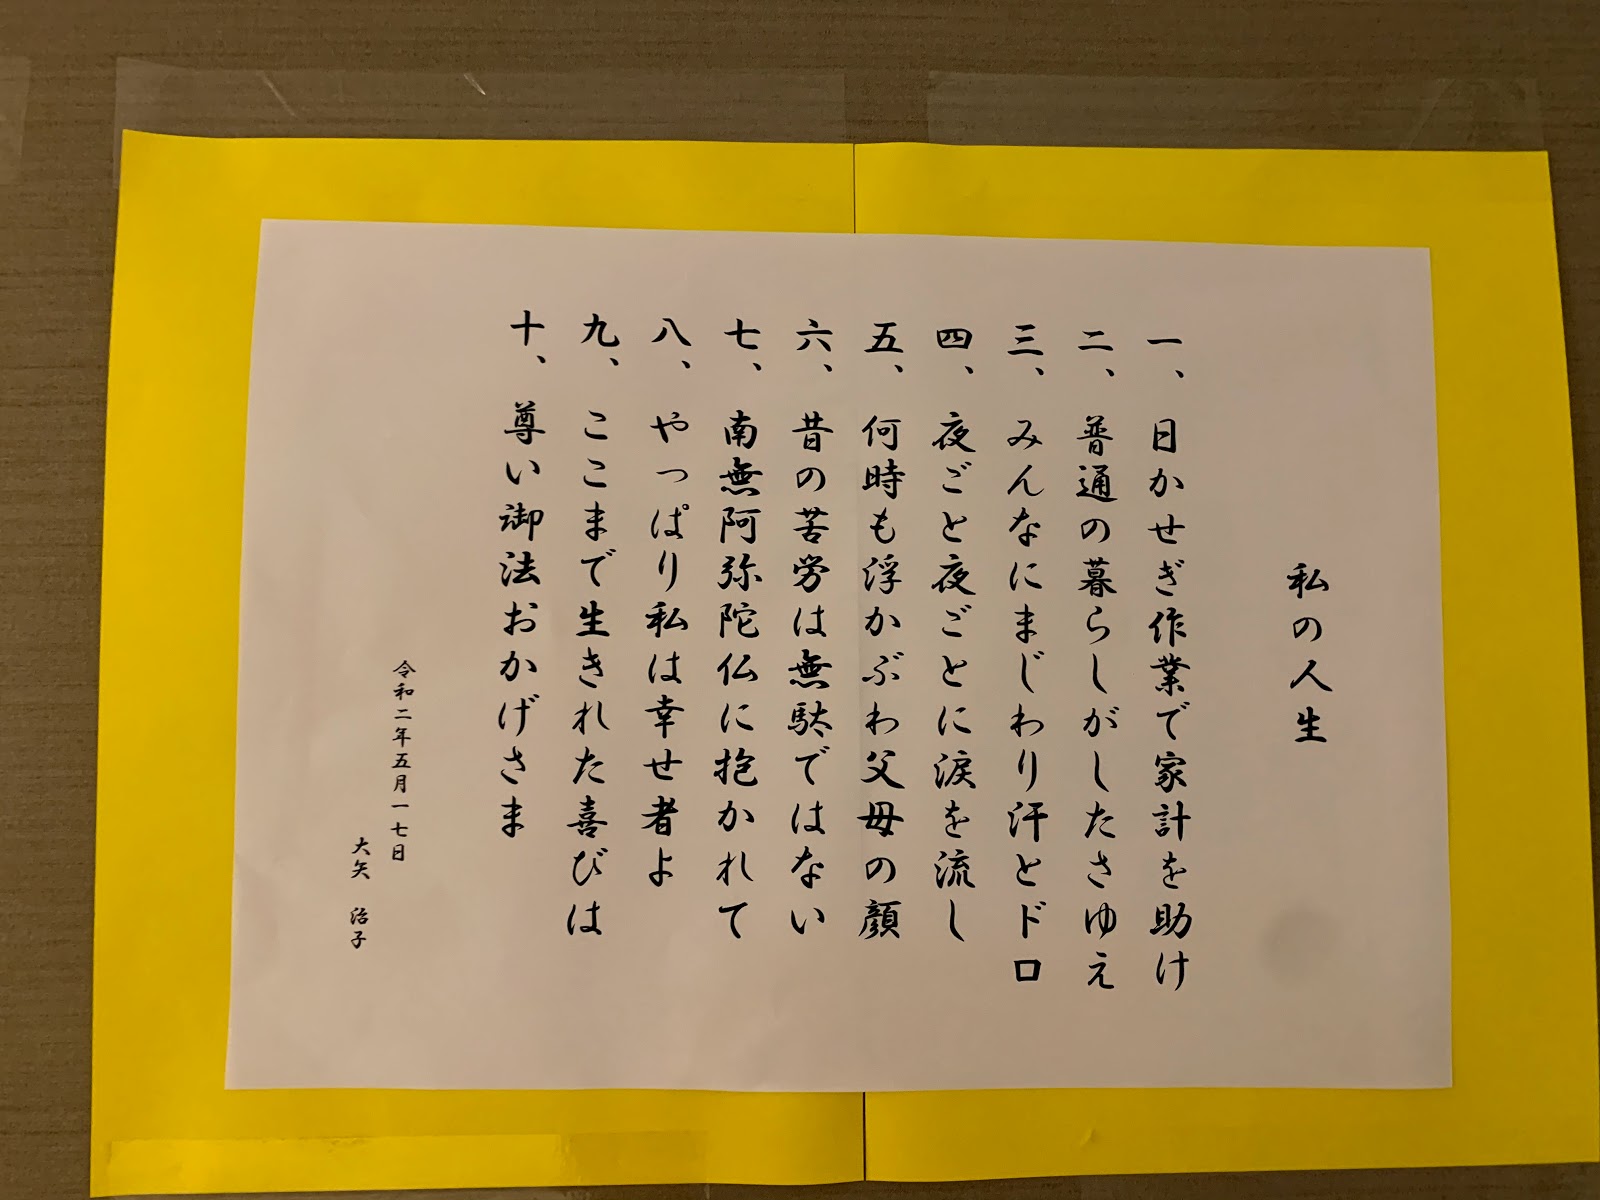 私の人生
一、日かせぎ作業で家計を助け
二、普通の暮らしがしたさゆえ
三、みんなにまじわり汗とドロ
四、夜ごと夜ごとに涙を流し
五、何時も浮かぶわ父母の顔
六、昔の苦労は無駄ではない
七、南無阿弥陀仏に抱かれて
八、やっぱり私は幸せ者よ
九、ここまで生きれた喜びは
十、尊い御法おかげさま
令和二年五月一七日
大矢 治子